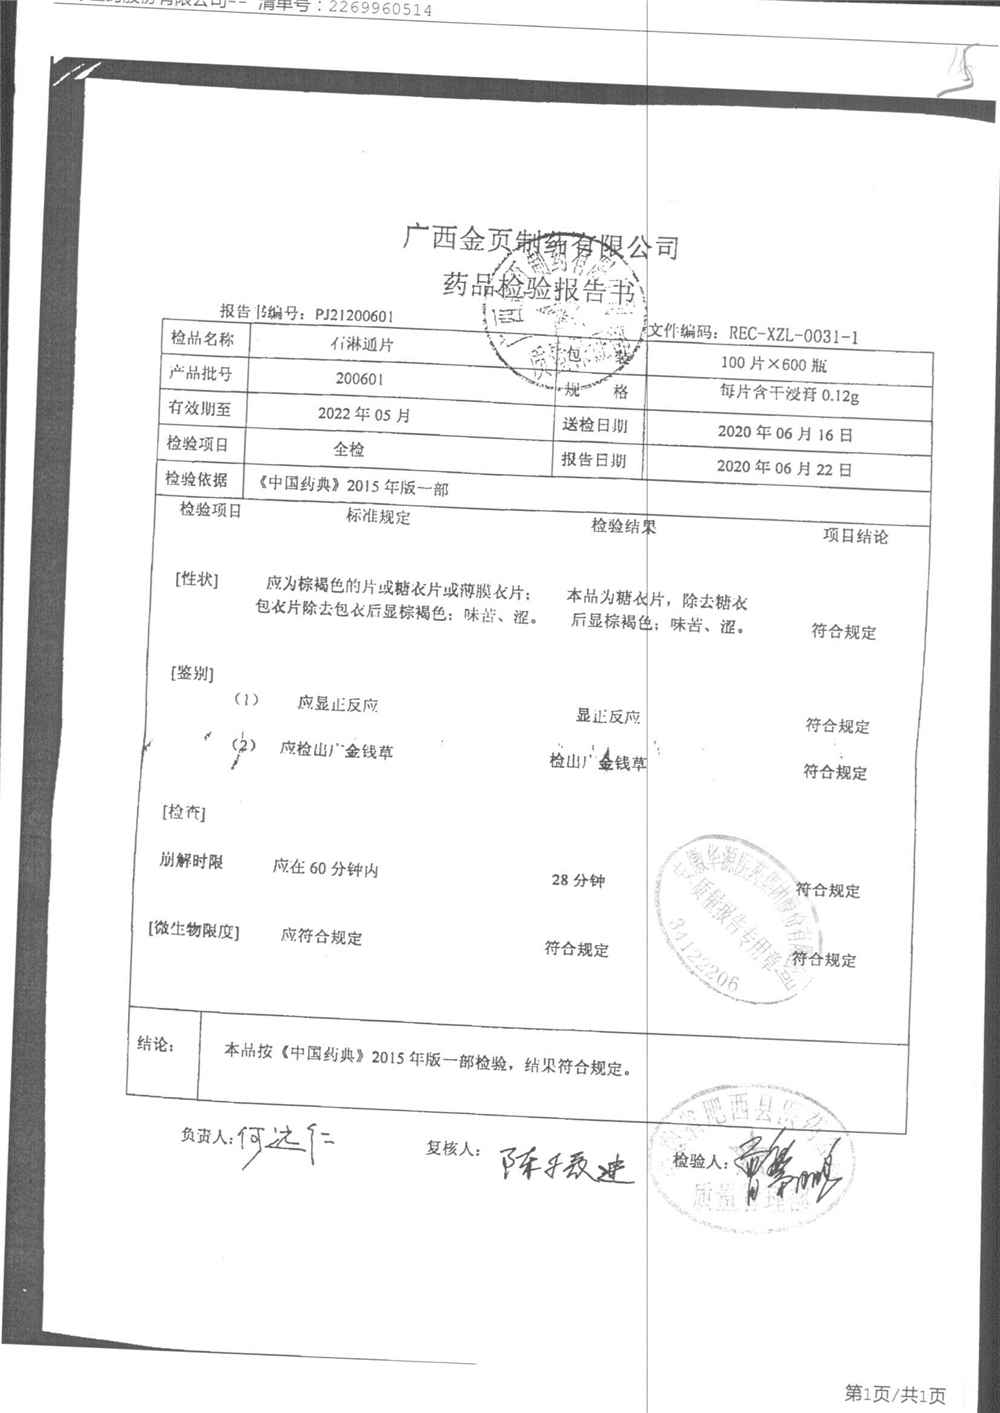 清单号：2269960514
广西金页制药有限公司
药品检验报告书
报告书编号：PJ21200601
文件编码：REC-XZL-0031-1
检品名称 石淋通片 包 装 100 片×600 瓶
产品批号 200601 规 格 每片含干浸膏 0.12g
有效期至 2022 年 05 月 送检日期 2020 年 06 月 16 日
检验项目 全检 报告日期 2020 年 06 月 22 日
检验依据 《中国药典》2015 年版一部
检验项目 标准规定 检验结果 项目结论
[性状] 应为棕褐色的片或糖衣片或薄膜衣片； 本品为糖衣片，除去糖衣
包衣片除去包衣后显棕褐色；味苦、涩。 后显棕褐色；味苦、涩。 符合规定
[鉴别]
（1） 应显正反应 显正反应 符合规定
（2） 应检出广金钱草 检出广金钱草 符合规定
[检查]
崩解时限 应在 60 分钟内 28 分钟 符合规定
[微生物限度] 应符合规定 符合规定 符合规定
质量报告专用章
34122206
结论： 本品按《中国药典》2015 年版一部检验，结果符合规定。
负责人： 复核人： 检验人：
肥西县
质量管理部
第1页/共1页